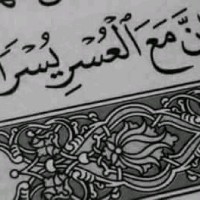 نَّ مَعَ ٱلْعُسْرِ يُسْرًا